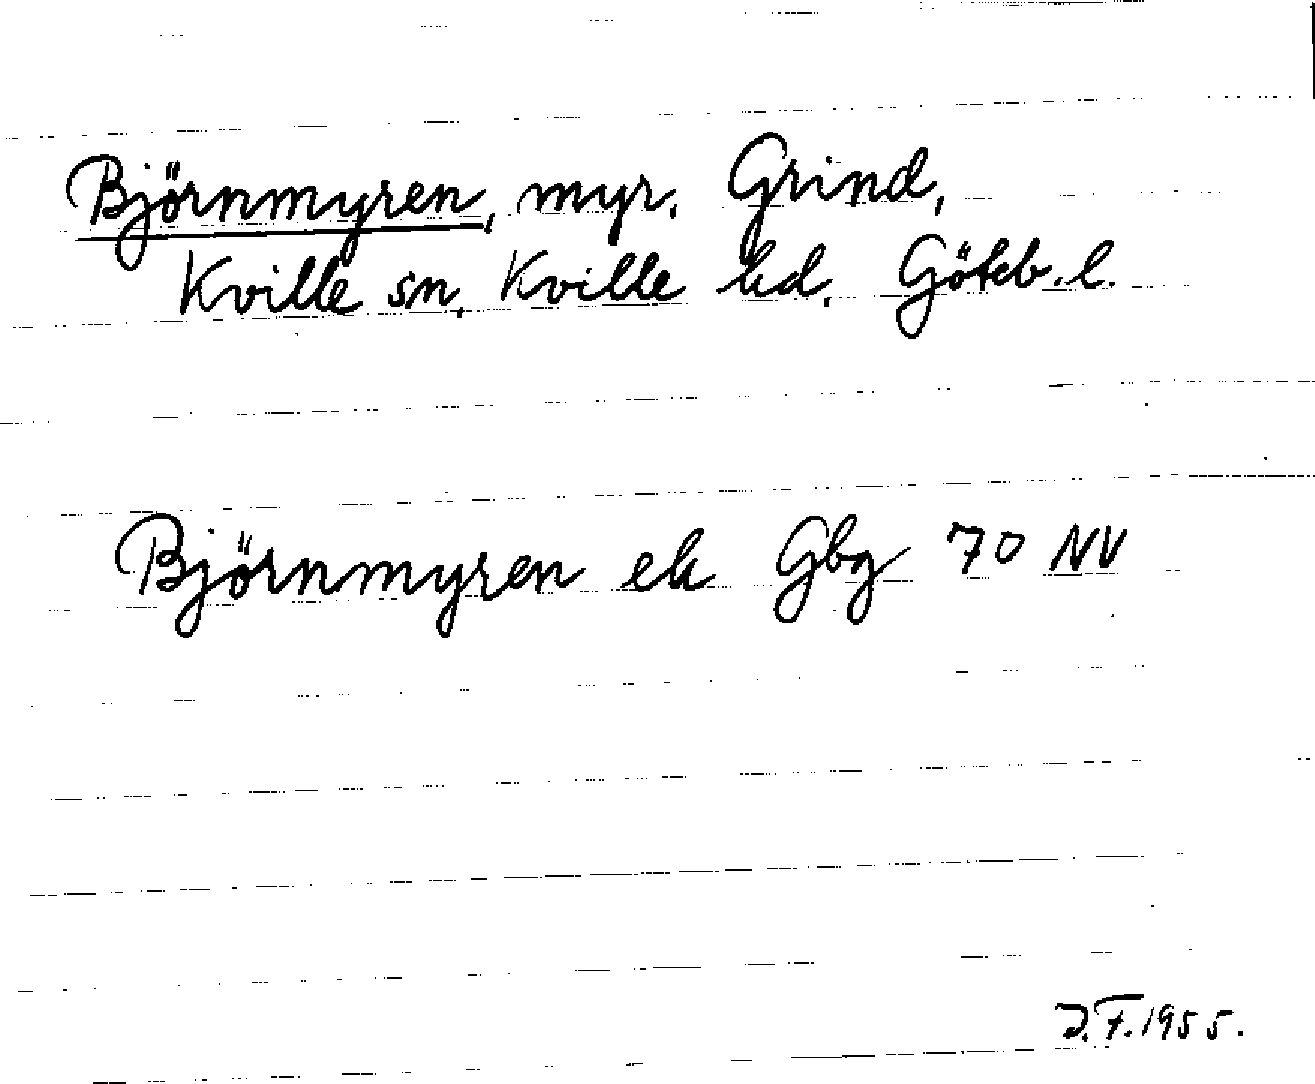 Björnmyren, myr. Grind,
Kville sn, Kville hd. Göteb. l.
Björnmyren ek Gbg 70 NV
J.F. 1955.